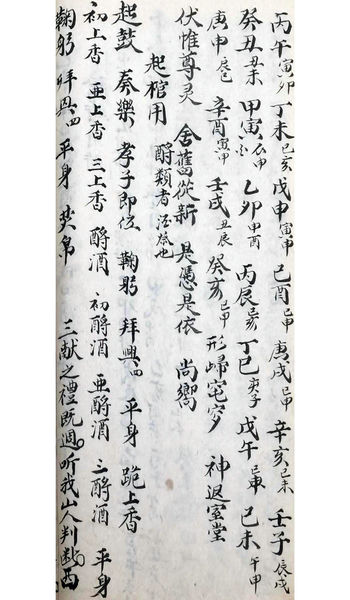 丙午寅卯 丁未巳亥 戊申寅申 己酉巳申 庚戌巳申 辛亥巳未 壬子辰戌
癸丑丑未 甲寅 乙卯甲酉 丙辰巳亥 丁巳庚子 戊午 己未午甲
庚申辰巳 辛酉寅甲 壬戌丑辰 癸亥巳申 形歸宅窀 神返室堂
伏惟尊灵 舍舊從新 是憑是依 尚嚮
起棺用 酹類者 也
起鼓 奏樂 孝子即位 鞠躬 拜興四 平身 跪上香
初上香 亜上香 三上香 酹酒 初酹酒 亜酹酒 三酹酒 平身
鞠躬 拜興四 平身 焚帛 三献之禮既週 听我山人判断 西